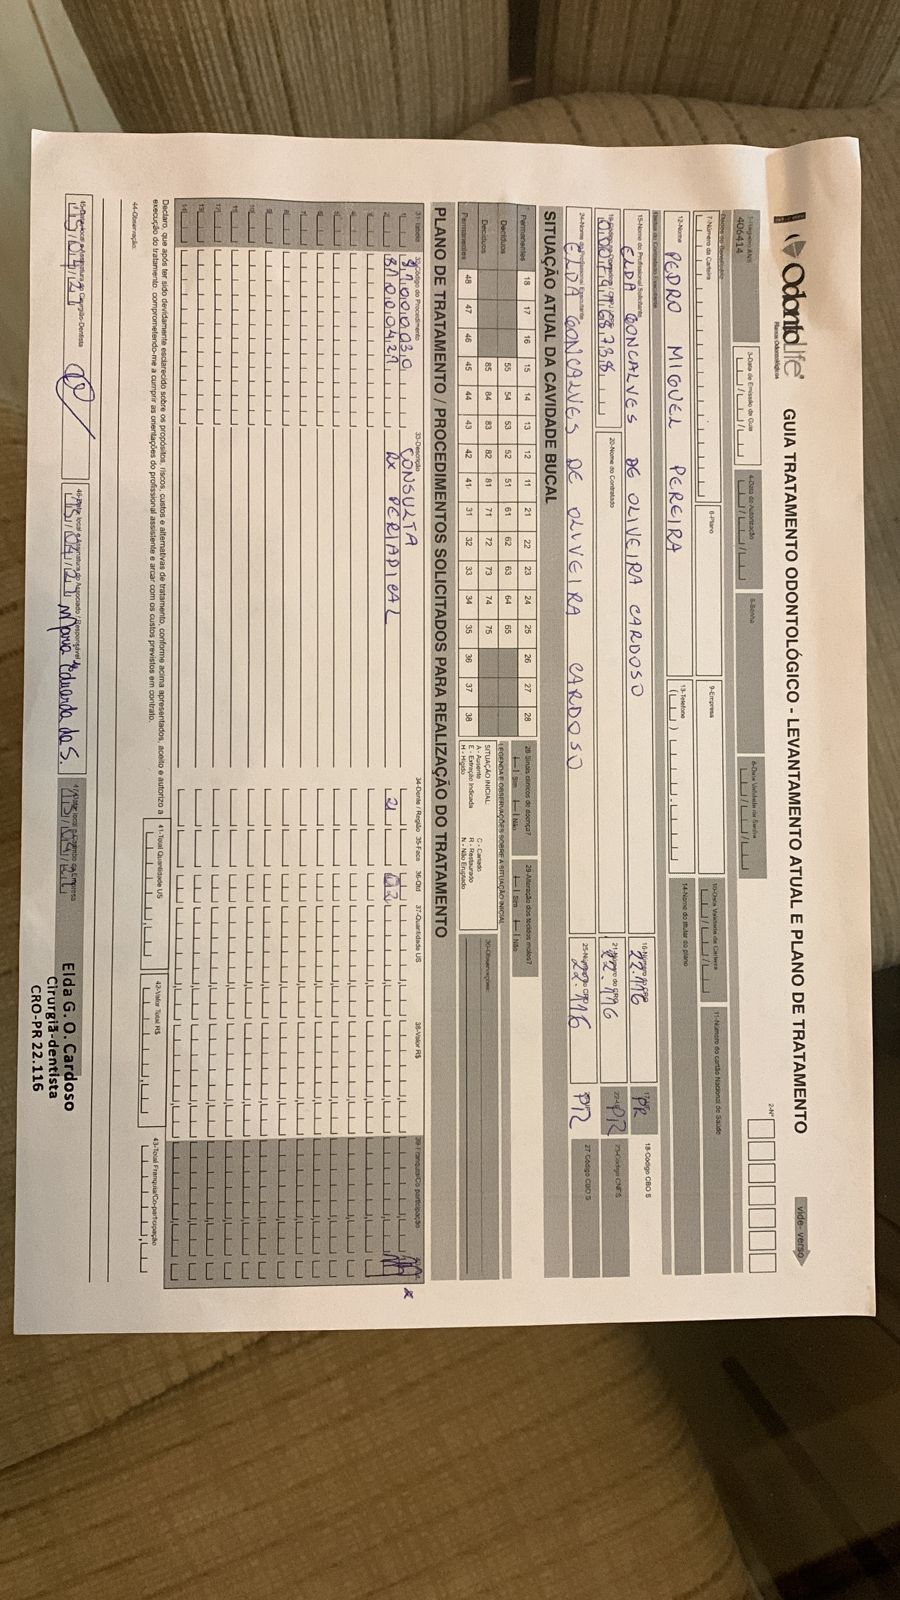 OdontoLife®
Planos Odontológicos
GUIA TRATAMENTO ODONTOLÓGICO - LEVANTAMENTO ATUAL E PLANO DE TRATAMENTO
vide-verso
2-Nº
1-Registro ANS
406414
3-Data de Emissão da Guia
4-Data de Autorização
5-Senha
6-Data Validade da Senha
Dados do Beneficiário
7-Número da Carteira
8-Plano
9-Empresa
10-Data Validade da Carteira
11-Número do cartão Nacional de Saúde
12-Nome
PEDRO MIGUEL PEREIRA
13-Telefone
14-Nome do titular do plano
15-Nome do Profissional Solicitante
ELDA GONCALVES DE OLIVEIRA CARDOSO
16-Número do CRO
22.116
17-UF
PR
18-Código CBO S
20-Nome do Contratado
22.116
22-UF
PR
23-Código CNES
24-Nome do Profissional Executante
ELDA GONCALVES DE OLIVEIRA CARDOSO
25-Número do CRO
22.116
PR
27-Código CBO S
SITUAÇÃO ATUAL DA CAVIDADE BUCAL
Permanentes 18 17 16 15 14 13 12 11 21 22 23 24 25 26 27 28
Decíduos 55 54 53 52 51 61 62 63 64 65
Decíduos 85 84 83 82 81 71 72 73 74 75
Permanentes 48 47 46 45 44 43 42 41 31 32 33 34 35 36 37 38
28 Sinais clínicos de doença?
Sim Não
29-Alteração dos tecidos moles?
Sim Não
LEGENDA E OBSERVAÇÕES SOBRE A SITUAÇÃO INICIAL
SITUAÇÃO INICIAL:
A - Ausente C - Cariado
E - Extração Indicada R - Restaurado
H - Hígido N - Não Erupido
30-Observações:
PLANO DE TRATAMENTO / PROCEDIMENTOS SOLICITADOS PARA REALIZAÇÃO DO TRATAMENTO
31-Tabela 32-Código do Procedimento 33-Descrição 34-Dente / Região 35-Face 36-Qtd 37-Quantidade US 38-Valor R$ 39-Franquia/Co-participação
81000030 CONSULTA
81000421 RX PERIAPICAL 21 02
41-Total Quantidade US
42-Valor Total R$
43-Total Franquia/Co-participação
Declaro, que após ter sido devidamente esclarecido sobre os propósitos, riscos, custos e alternativas de tratamento, conforme acima apresentados, aceito e autorizo a
execução do tratamento comprometendo-me a cumprir as orientações do profissional assistente e arcar com os custos previstos em contrato.
44-Observação:
15/04/21
15/04/21 Maria Eduarda de S.
15/04/21
Elda G. O. Cardoso
Cirurgiã-dentista
CRO-PR 22.116